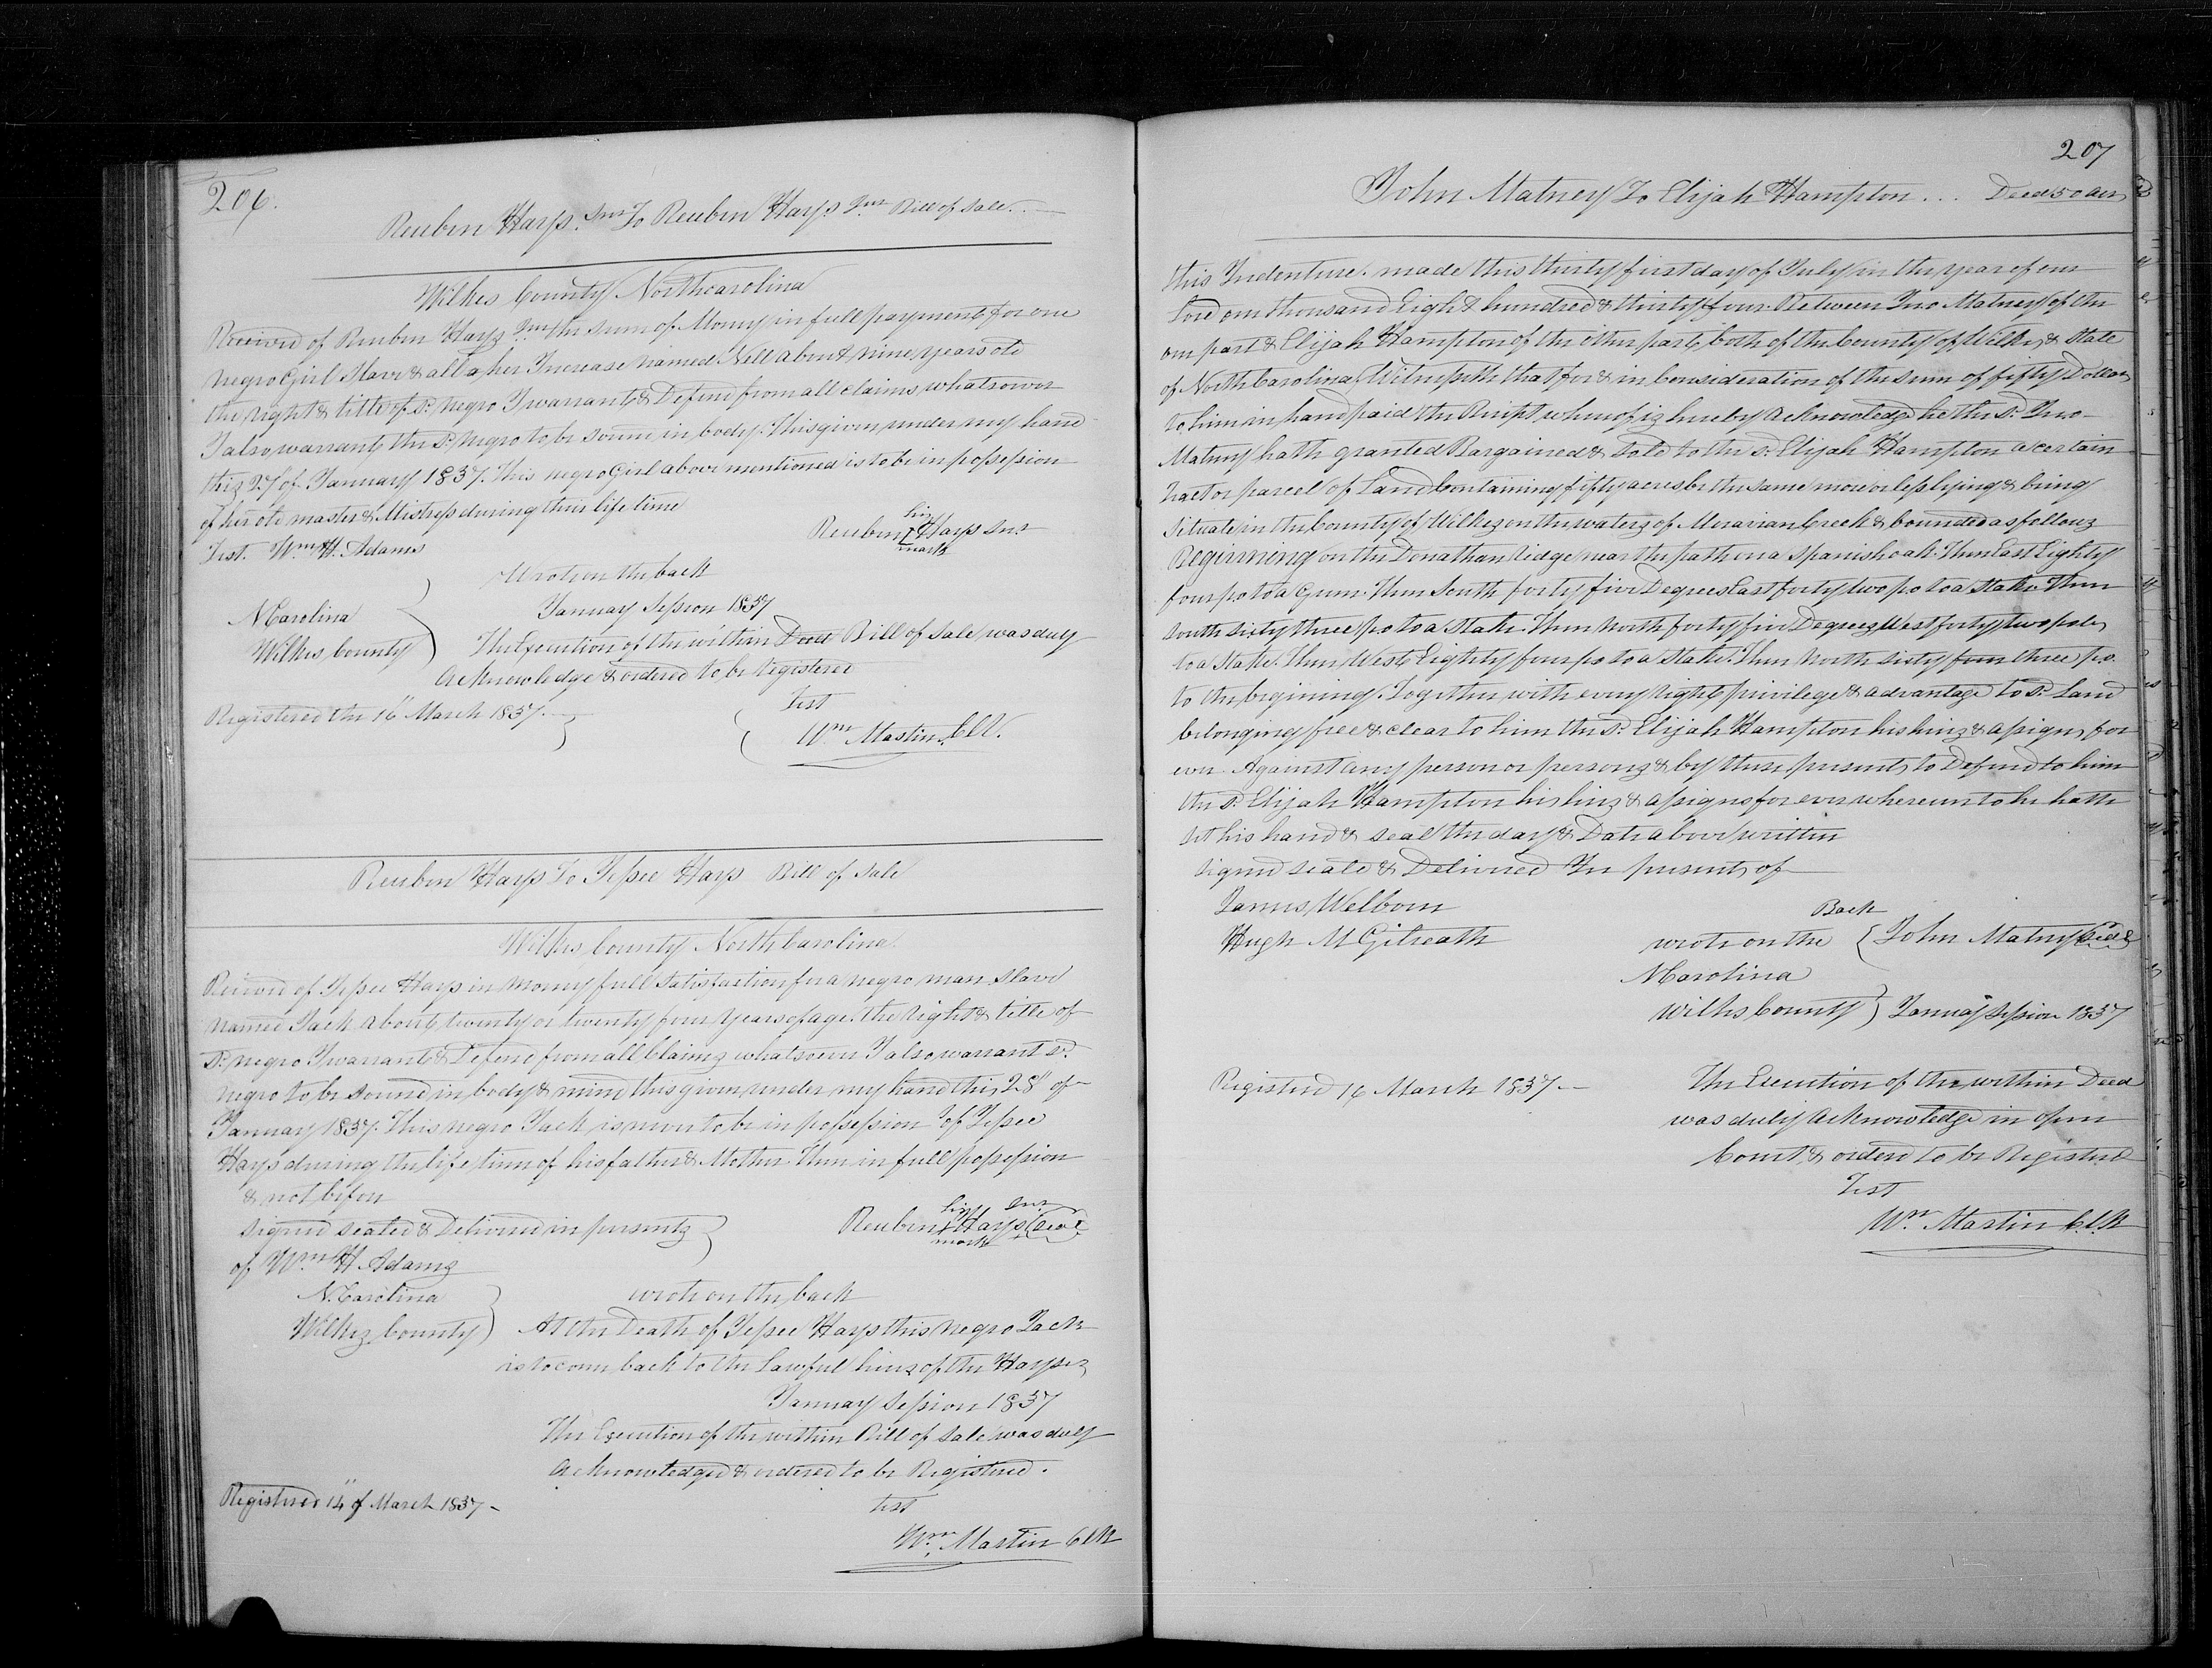 206.
Reuben Hays. Snr To Reuben Hays Jnr Bill of Sale.
Wilkes County North carolina
Received of Reuben Hays Jnr the sum of Money in full payment for one
negro Girl Slave & all a her Increase named Nell about nine years old
the right & title of sd. negro I warrant & Defend from all claims whatsoever
I also warrant the sd. Negro to be sound in body. This given under my hand
this 27 of January 1837. This negro Girl above mentioned is to be in possession
of her old master & Mistress during their life time
Test. Wm H. Adams
his
Reuben X Hays Snr
mark
Wrote on the back
N Carolina
Wilkes County
January Session 1837
The Execution of the within Deed Bill of Sale was duly
acknowledge & ordered to be registered
Registered the 16" March 1837.
Test
Wm Mastin, Clk.
Reuben Hays To Jessee Hays Bill of Sale
Wilkes County North Carolina
Received of Jessee Hays in Money full Satisfaction for a negro man slave
named Jack about twenty or twenty four years of age. the right & title of
sd. negro I warrant & Defend from all Claims whatsoever I also warrant sd.
negro to be sound in body & mind this given under my hand this 28" of
January 1837. This negro Jack is never to be in possession of Jessee
Hays during the life time of his father & Mother Then in full possession
& not before
Signed sealed & Delivered in presents
of Wm H Adams
his Snr
Reuben X Hays (Seal)
mark
N. Carolina
Wilkes County
wrote on the back
At the Death of Jessee Hays this negro Jack
is to come back to the Lawful heirs of the Hayses
January Session 1837
The Execution of the within Bill of Sale was duly
acknowledged & ordered to be Registered.
Registered 14" of March 1837
Test
Wm. Mastin Clk
207
John Matney To Elijah Hampton ... Deed 50 acr
this Indenture. made this thirty first day of July in the year of our
Lord one thousand Eight hundred & thirty four. Between Jno Matney of the
one part & Elijah Hampton of the other part, both of the County of Wilkes & State
of North Carolina Witnesseth that for & in Consideration of the sum of fifty Dollars
to him in hand paid the Recipt whereof is hereby acknowledge he the sd. Jno
Matney hath granted Bargained & sold to the sd. Elijah Hampton a certain
tract or parcel of Land Containing fifty acres be the same more or less lying & being
Situate in the County of Wilkes on the waters of Moravian Creek & bounded as follows
Begining on the Donathan ridge near the path on a Spanish oak. Then East Eighty
four po to a Gum. Then South forty five Degrees East forty two po to a Stake Then
South sixty three po to a Stake Then North forty five Degrees West forty two poles
to a Stake. Then West Eighty four po to a Stake. Then North sixty four three po.
to the begining. Together with every right privilege & advantage to sd. Land
belonging free & clear to him the sd. Elijah Hampton his heirs & assigns for
ever. Against any person or persons & by these presents to Defend to him
the sd. Elijah Hampton his heirs & assigns for ever whereunto he hath
set his hand & seal the day & Date above written
Signed seald & Delivered In presents of
James Welborn
Hugh M Gilreath
Back
wrote on the
John Matney (Seal)
N Carolina
Wilkes County
January Session 1837
Registerd 16 March 1837.
The Execution of the within Deed
was duly acknowledge in open
Court & ordered to be Registerd
Test
Wm Mastin Clk